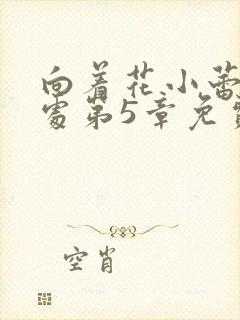 向着花小蕾
处第5章免
空肖